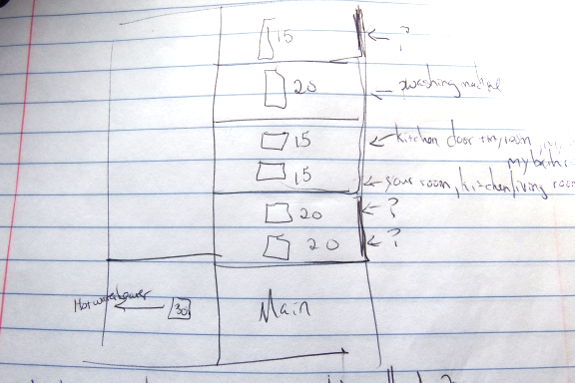 15 ← ?
20 ← washing machine
15 ← kitchen door + my room,
my bath
15 ← your room, kitchen/living room
20 ← ?
20 ← ?
Hot water heater ← 30
Main